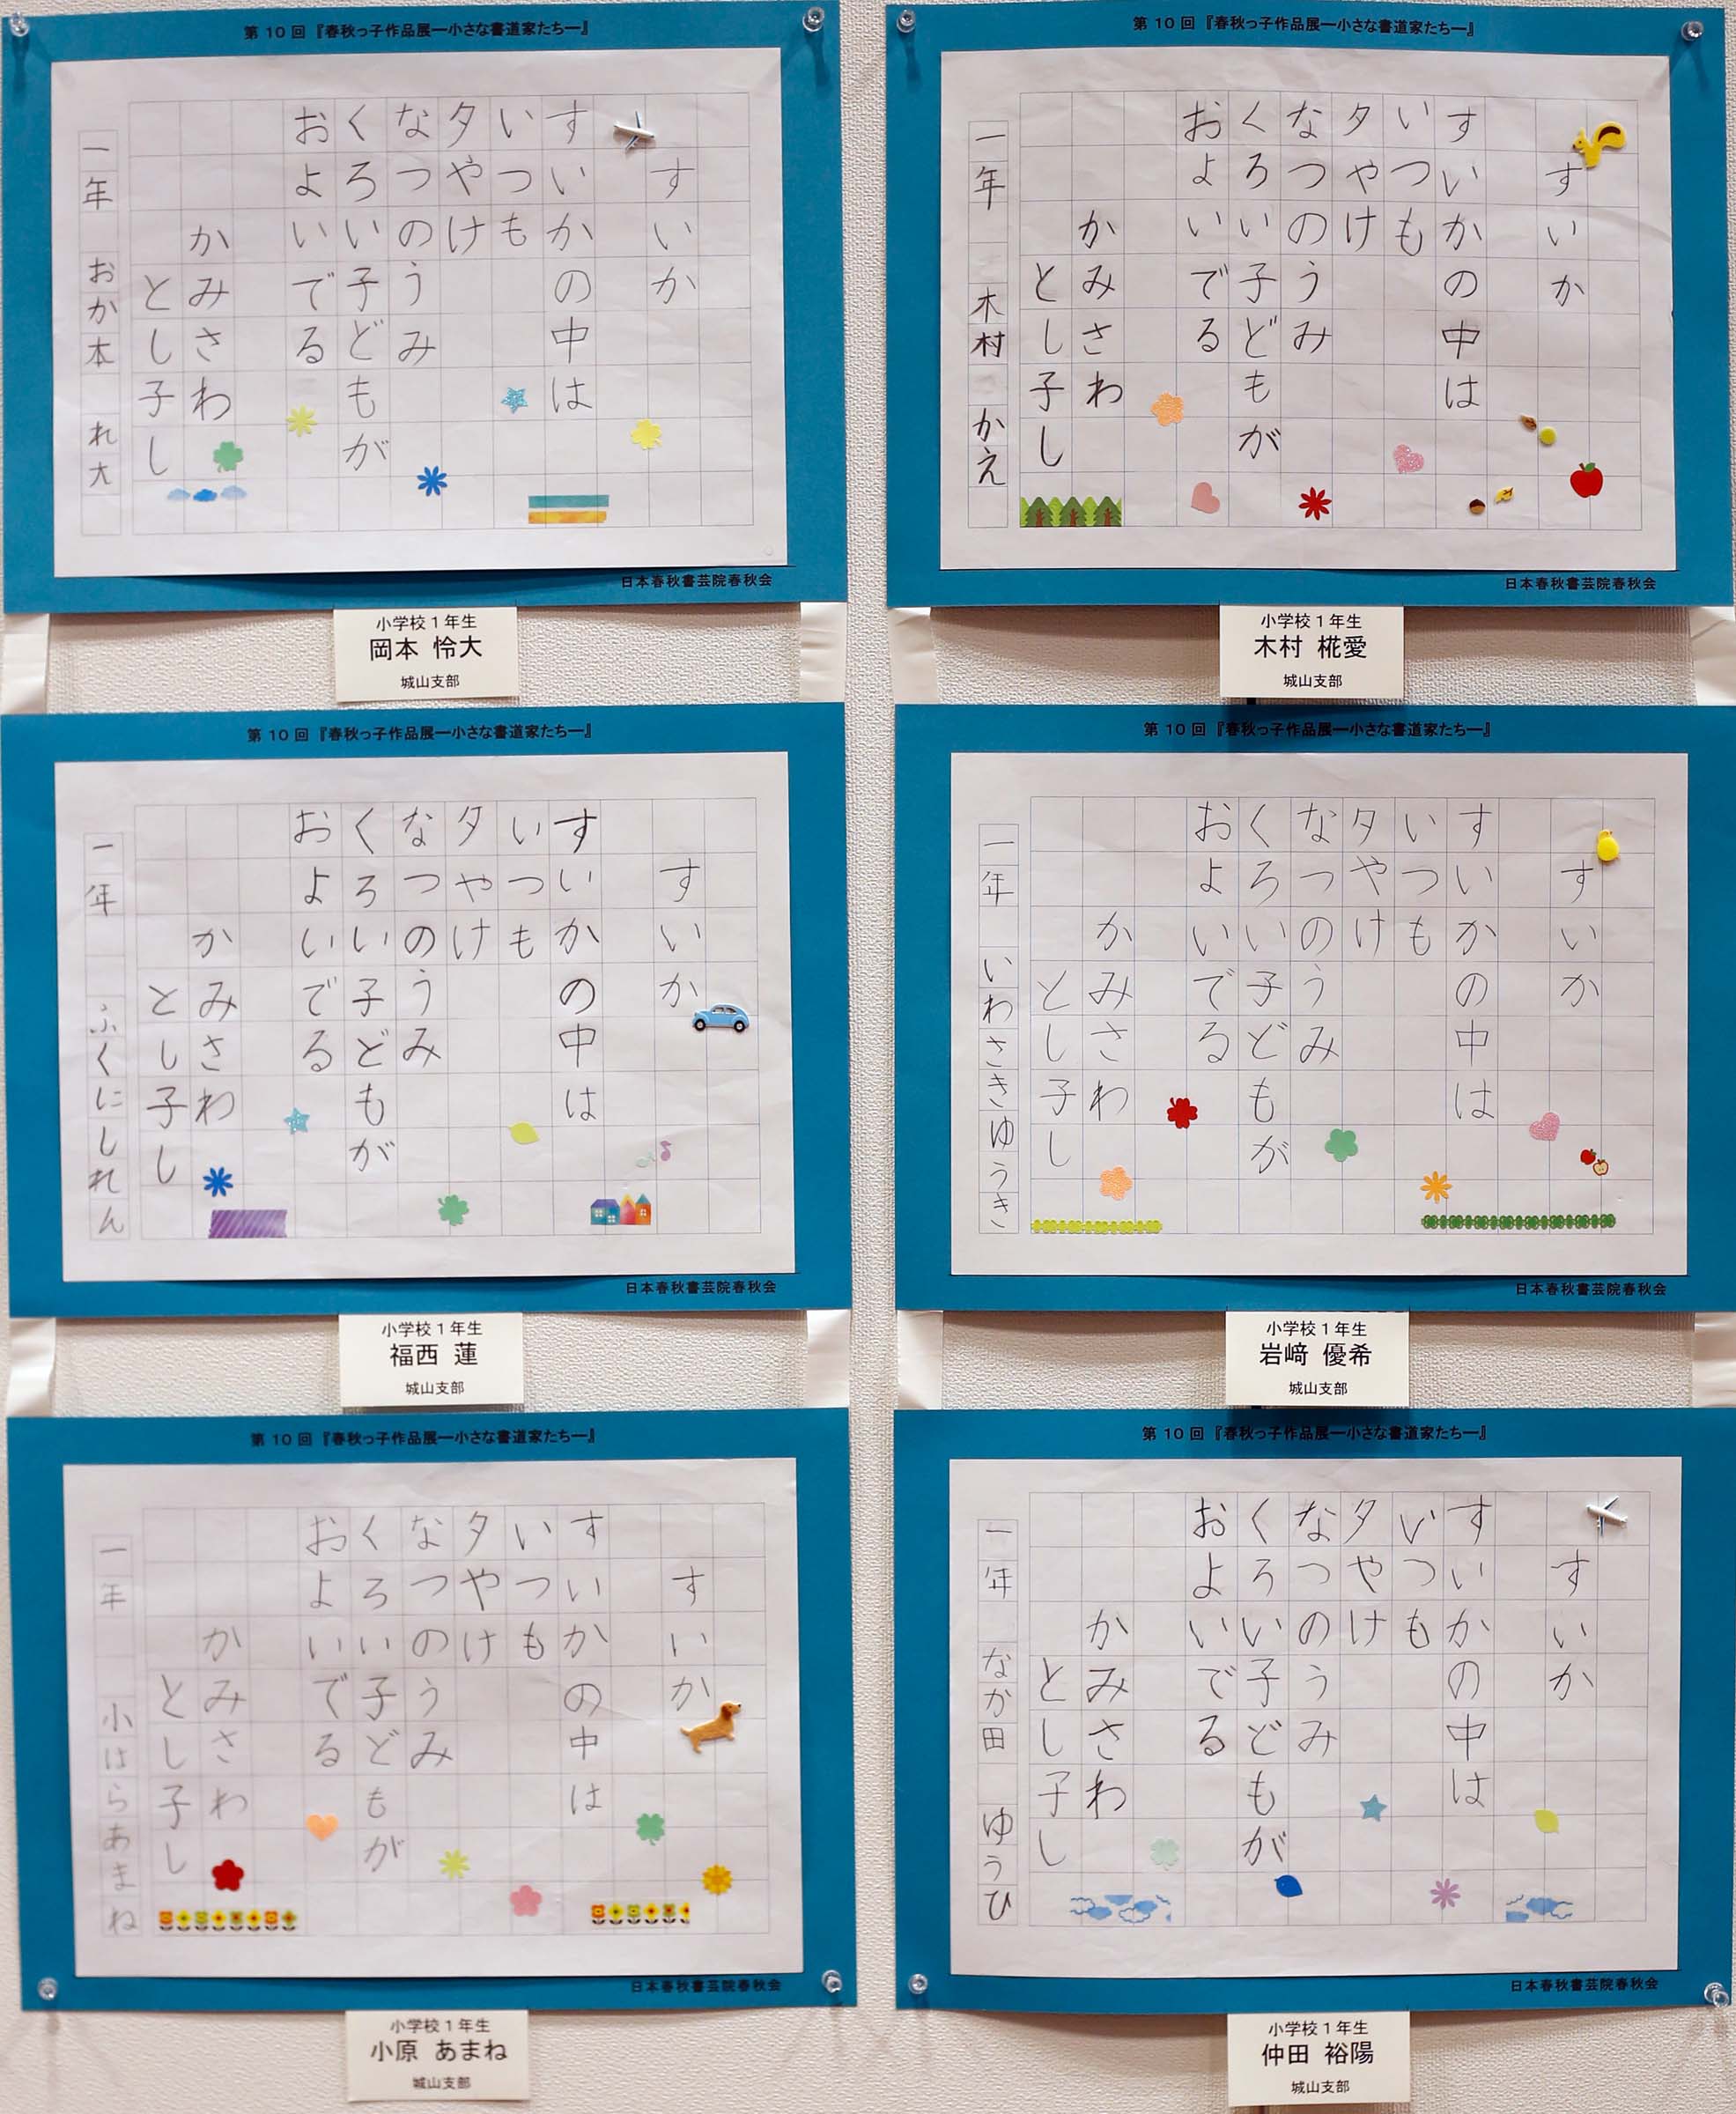 第10回『春秋っ子作品展―小さな書道家たち―』
すいか
すいかの中は
いつも
夕やけ
なつのうみ
くろい子どもが
およいでる
かみさわ
とし子し
一年 おか本 れ大
日本春秋書芸院春秋会
小学校1年生
岡本 怜大
城山支部
第10回『春秋っ子作品展―小さな書道家たち―』
すいか
すいかの中は
いつも
夕やけ
なつのうみ
くろい子どもが
およいでる
かみさわ
とし子し
一年 木村 かえ
日本春秋書芸院春秋会
小学校1年生
木村 椛愛
城山支部
第10回『春秋っ子作品展―小さな書道家たち―』
すいか
すいかの中は
いつも
夕やけ
なつのうみ
くろい子どもが
およいでる
かみさわ
とし子し
一年 ふくにしれん
日本春秋書芸院春秋会
小学校1年生
福西 蓮
城山支部
第10回『春秋っ子作品展―小さな書道家たち―』
すいか
すいかの中は
いつも
夕やけ
なつのうみ
くろい子どもが
およいでる
かみさわ
とし子し
一年 いわさきゆうき
日本春秋書芸院春秋会
小学校1年生
岩﨑 優希
城山支部
第10回『春秋っ子作品展―小さな書道家たち―』
すいか
すいかの中は
いつも
夕やけ
なつのうみ
くろい子どもが
およいでる
かみさわ
とし子し
一年 小はらあまね
日本春秋書芸院春秋会
小学校1年生
小原 あまね
城山支部
第10回『春秋っ子作品展―小さな書道家たち―』
すいか
すいかの中は
いつも
夕やけ
なつのうみ
くろい子どもが
およいでる
かみさわ
とし子し
一年 なか田 ゆうひ
日本春秋書芸院春秋会
小学校1年生
仲田 裕陽
城山支部